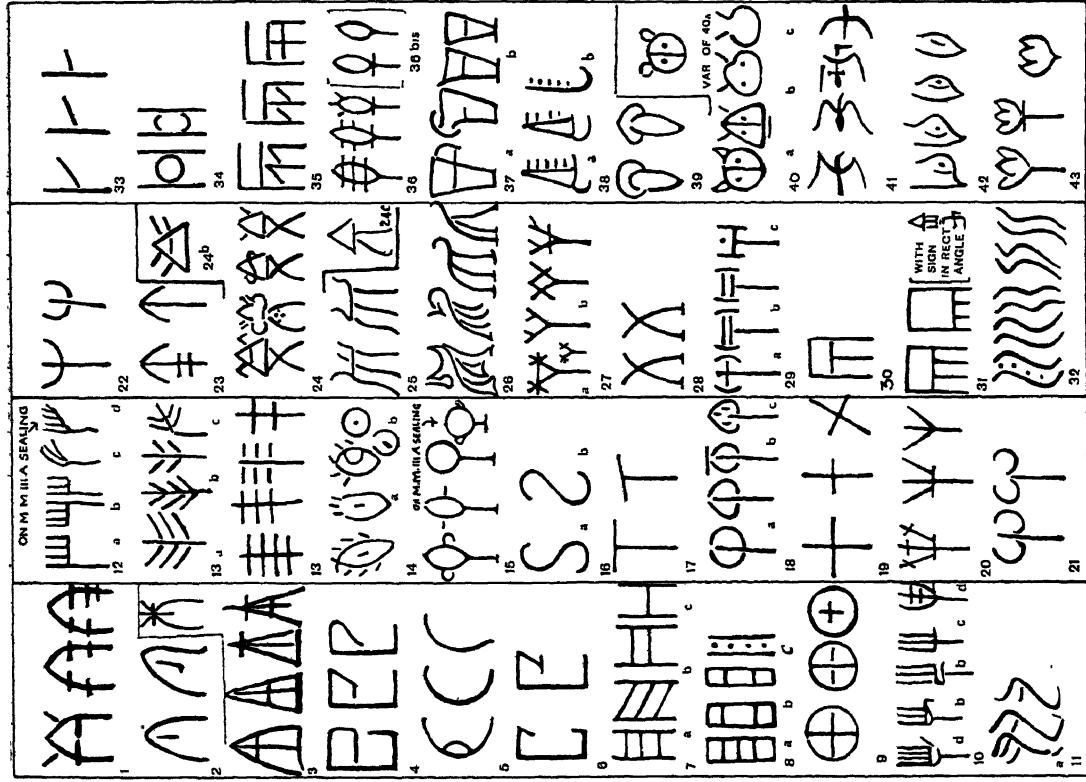 1
2
3
4
5
6
7 a b c
8 a b c
9
10 d b b c d
11 a
ON M M III A SEALING
12 a b c d
13 d b c
13
14 a b
ON M.M.III A SEALING
15
16 a b
17
18 a b c
19
20
21
22
23
24b
24
25
24c
26
27 a b
28
29 a b c
30
31
WITH
SIGN
IN RECT
ANGLE
32
33
34
35
36
36 bis
37 a b
38 a b
39
VAR OF 40a
40 a b c
41
42
43